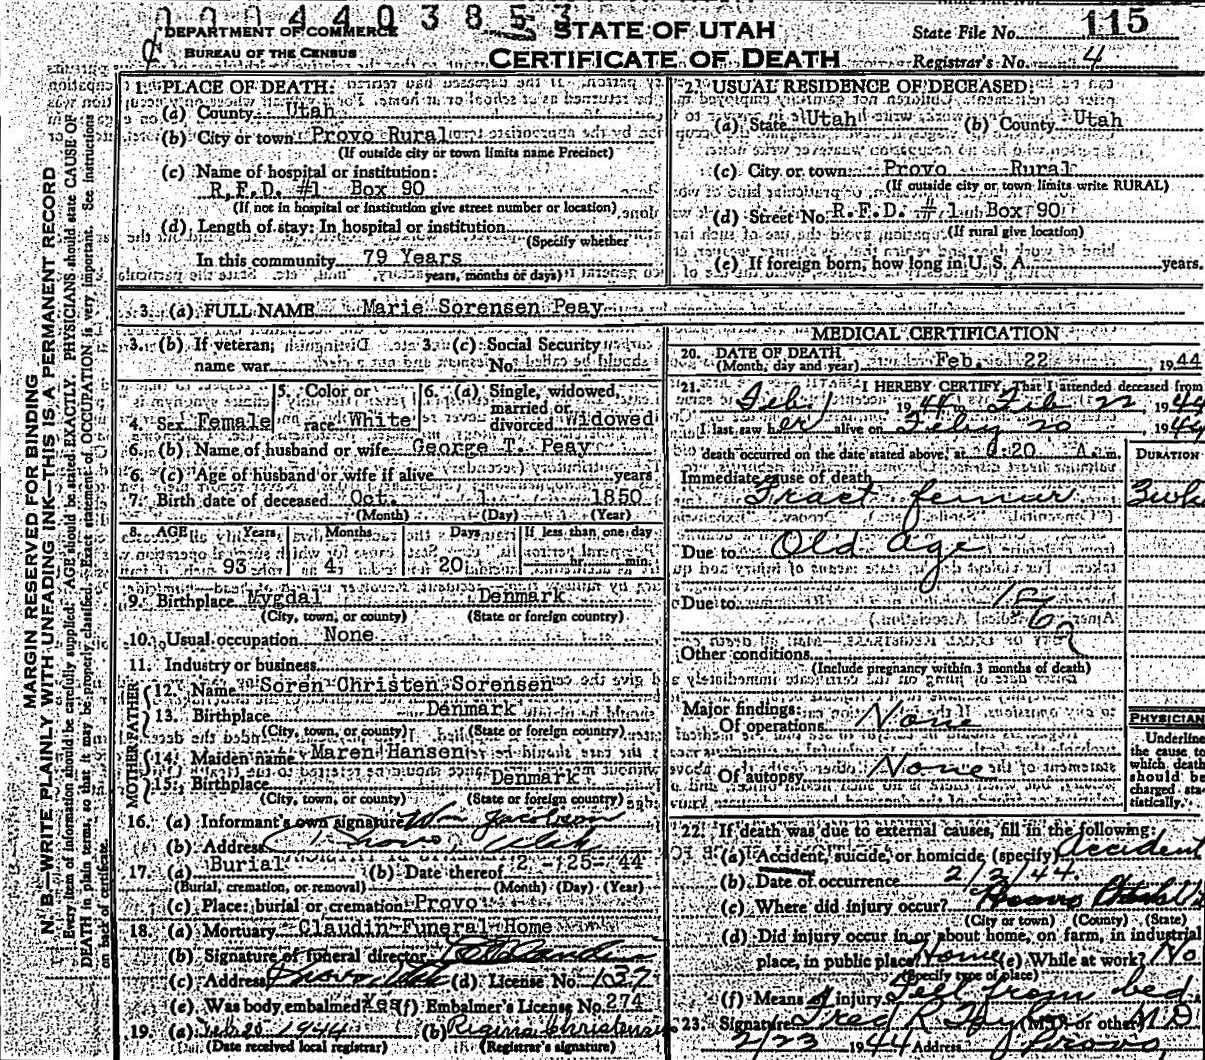 0004403853
DEPARTMENT OF COMMERCE
BUREAU OF THE CENSUS
STATE OF UTAH
CERTIFICATE OF DEATH
State File No. 115
Registrar's No. 4
MARGIN RESERVED FOR BINDING
N. B.—WRITE PLAINLY WITH UNFADING INK—THIS IS A PERMANENT RECORD
Every item of information should be carefully supplied. AGE should be stated EXACTLY. PHYSICIANS should state CAUSE OF
DEATH in plain terms, so that it may be properly classified. Exact statement of OCCUPATION is very important. See instructions
on back of certificate.
1. PLACE OF DEATH:
(a) County Utah
(b) City or town Provo Rural
(If outside city or town limits name Precinct)
(c) Name of hospital or institution:
R.F.D. #1 Box 90
(If not in hospital or institution give street number or location)
(d) Length of stay: In hospital or institution
(Specify whether
In this community 79 Years
years, months or days)
2. USUAL RESIDENCE OF DECEASED:
(a) State Utah (b) County Utah
(c) City or town Provo Rural
(If outside city or town limits write RURAL)
(d) Street No. R.F.D. # 1 Box 90
(If rural give location)
(e) If foreign born, how long in U. S. A. years.
3. (a) FULL NAME Marie Sorensen Peay
3. (b) If veteran, name war
3. (c) Social Security No.
4. Sex Female
5. Color or race White
6. (a) Single, widowed, married or divorced Widowed
6. (b) Name of husband or wife George T. Peay
6. (c) Age of husband or wife if alive years
7. Birth date of deceased Oct. 1 1850
(Month) (Day) (Year)
8. AGE Years Months Days If less than one day
93 4 20 hr. min.
9. Birthplace Mygdal Denmark
(City, town, or county) (State or foreign country)
10. Usual occupation None
11. Industry or business
FATHER
12. Name Soren Christen Sorensen
13. Birthplace Denmark
(City, town, or county) (State or foreign country)
MOTHER
14. Maiden name Maren Hansen
15. Birthplace Denmark
(City, town, or county) (State or foreign country)
16. (a) Informant's own signature Wm Jacobson
(b) Address Provo, Utah
17. (a) Burial (b) Date thereof 2-25-44
(Burial, cremation, or removal) (Month) (Day) (Year)
(c) Place: burial or cremation Provo
18. (a) Mortuary Claudin Funeral Home
(b) Signature of funeral director
(c) Address Provo, Utah (d) License No. 1037
(e) Was body embalmed? Yes (f) Embalmer's License No. 274
19. (a) 1944 (b)
(Date received local registrar) (Registrar's signature)
MEDICAL CERTIFICATION
20. DATE OF DEATH
(Month, day and year) Feb. 22 1944
21. I HEREBY CERTIFY, That I attended deceased from
Feb 1 1944 Feb 22 1944
I last saw her alive on Feby 20 1944
death occurred on the date stated above, at :20 A.m.
DURATION
Immediate cause of death
Fract femur 3 wks
Due to Old age
Due to
Other conditions
(Include pregnancy within 3 months of death)
Major findings:
Of operations None
Of autopsy None
PHYSICIAN
Underline
the cause to
which death
should be
charged sta-
tistically.
22. If death was due to external causes, fill in the following:
(a) Accident, suicide, or homicide (specify) Accident
(b) Date of occurrence 2/2/44
(c) Where did injury occur? Provo Utah
(City or town) (County) (State)
(d) Did injury occur in or about home, on farm, in industrial
place, in public place? Home (e) While at work? No
(Specify type of place)
(f) Means of injury Fell from bed
23. Signature Fred R Taylor (M.D. or other) M D
2/23 1944 Address Provo